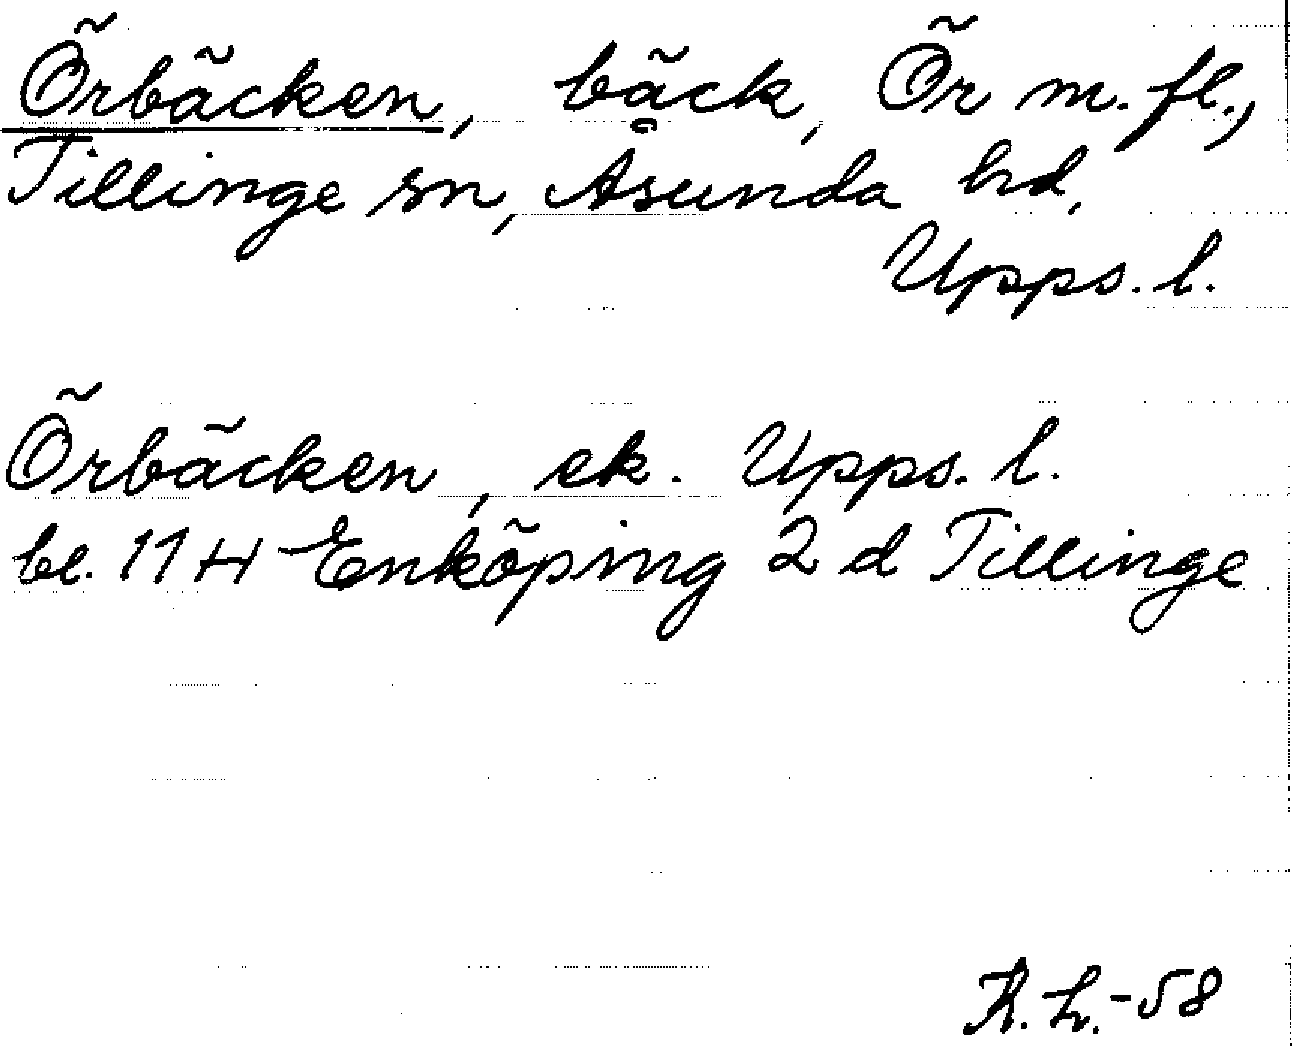 Örbäcken, bäck, Ör m. fl.,
Tillinge sn, Åsunda hd,
Upps. l.
Örbäcken, ek. Upps. l.
bl. 11 H Enköping 2 d Tillinge
K. L. -58